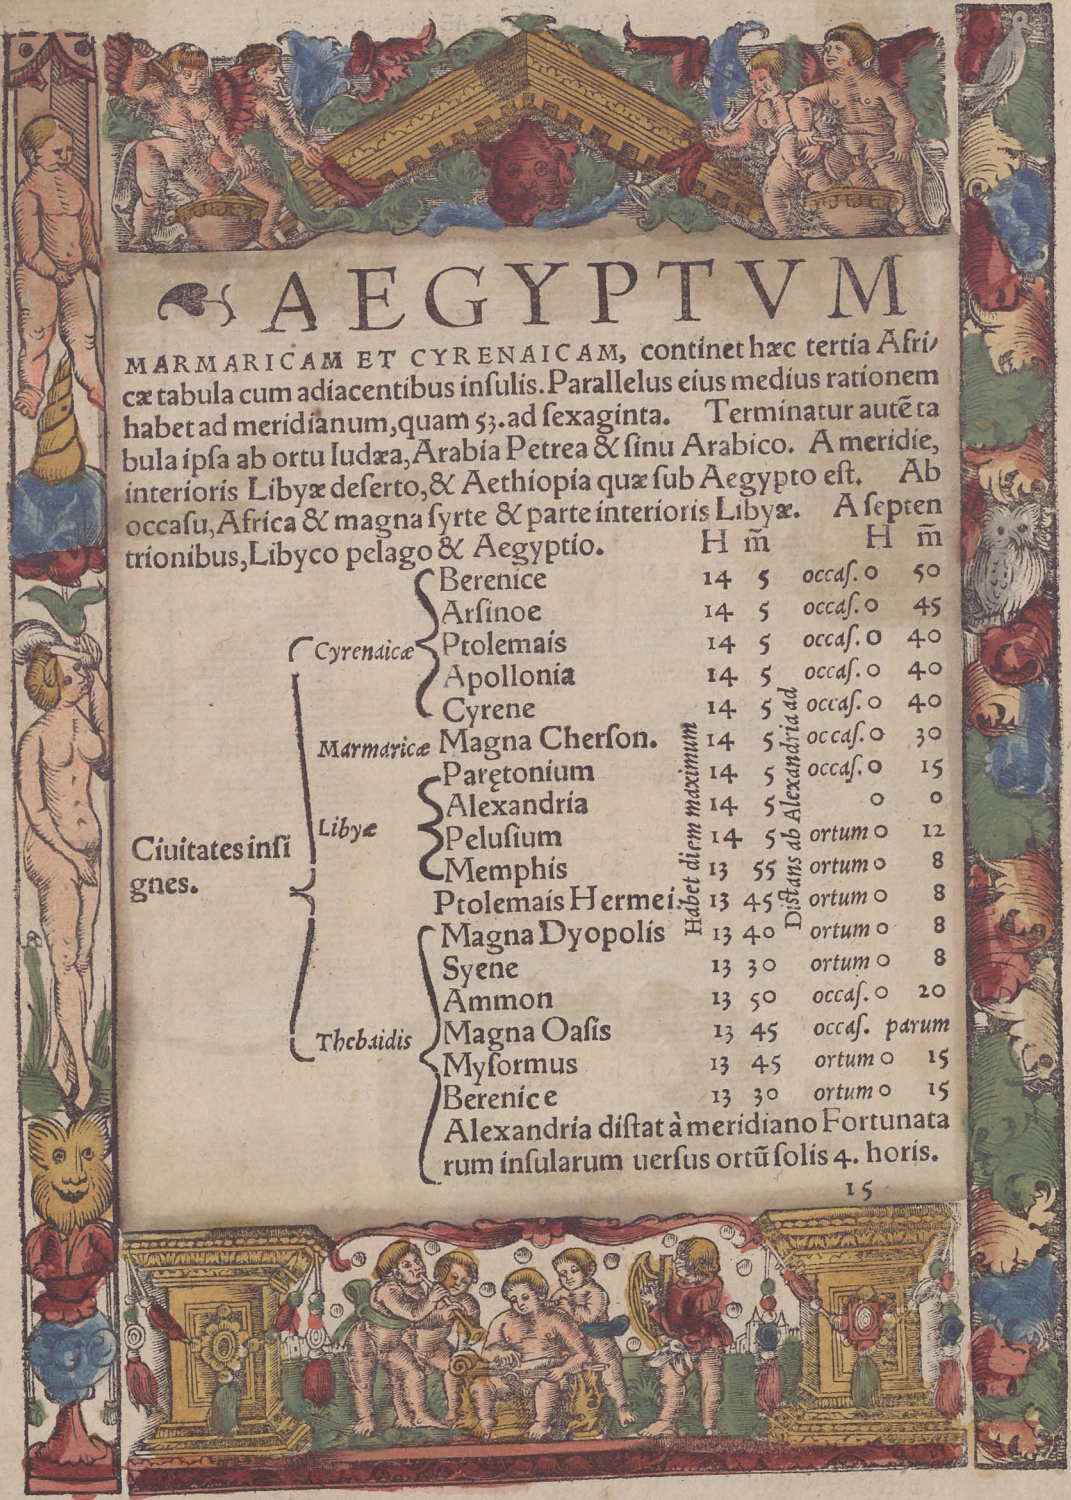 AEGYPTVM
MARMARICAM ET CYRENAICAM, continet hæc tertia Afri/
cæ tabula cum adiacentibus inſulis. Parallelus eius medius rationem
habet ad meridianum, quam 53. ad ſexaginta. Terminatur autē ta
bula ipſa ab ortu Iudæa, Arabia Petrea & ſinu Arabico. A meridie,
interioris Libyæ deſerto, & Aethiopia quæ ſub Aegypto eſt. Ab
occaſu, Africa & magna ſyrte & parte interioris Libyæ. A ſepten
trionibus, Libyco pelago & Aegyptio. H m̃ H m̃
Berenice 14 5 occaſ. 0 50
Arſinoe 14 5 occaſ. 0 45
Cyrenaicæ Ptolemais 14 5 occaſ. 0 40
Apollonia 14 5 occaſ. 0 40
Cyrene 14 5 occaſ. 0 40
Marmaricæ Magna Cherſon. 14 5 occaſ. 0 30
Parętonium 14 5 occaſ. 0 15
Alexandria 14 5 0 0
Libyæ Peluſium 14 5 ortum 0 12
Ciuitates inſi
gnes.
Memphis 13 55 ortum 0 8
Ptolemais Hermei. 13 45 ortum 0 8
Habet diem maximum
Distans ab Alexandria ad
Magna Dyopolis 13 40 ortum 0 8
Syene 13 30 ortum 0 8
Ammon 13 50 occaſ. 0 20
Thebaidis Magna Oaſis 13 45 occaſ. parum
Myſormus 13 45 ortum 0 15
Berenice 13 30 ortum 0 15
Alexandria diſtat à meridiano Fortunata
rum inſularum uerſus ortū ſolis 4. horis.
15